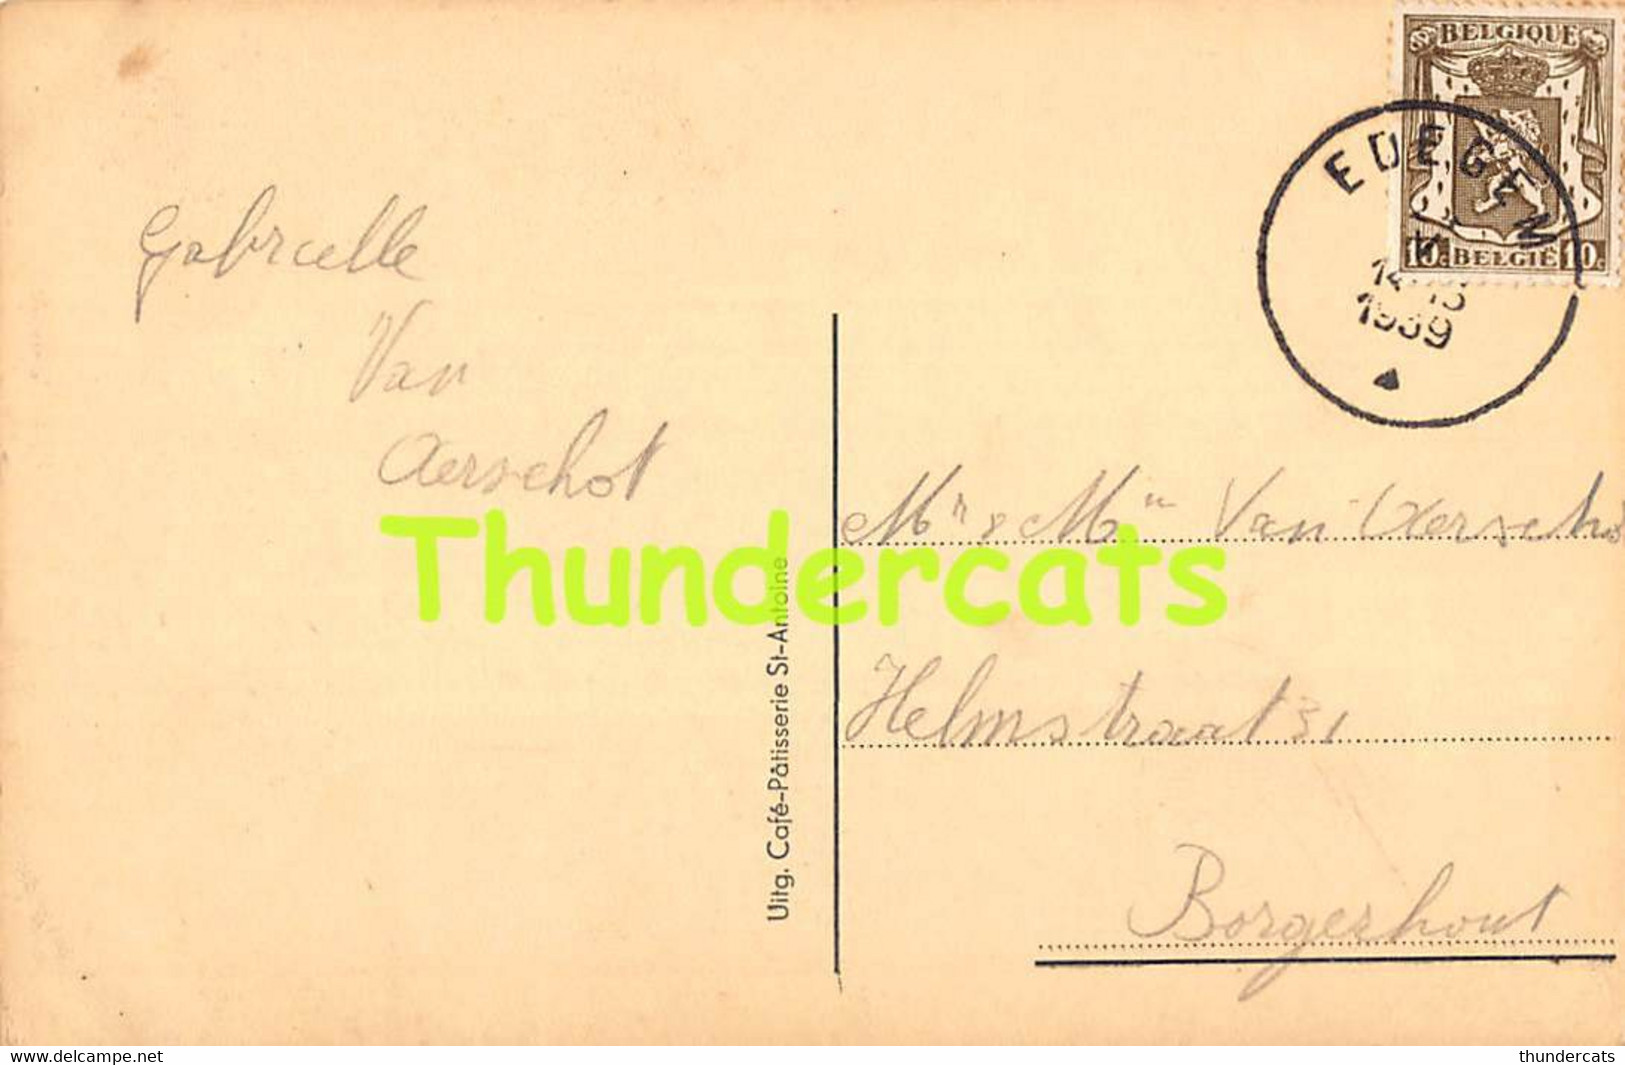 BELGIQUE
10c BELGIË 10c
EDEGEM
14-15
1939
Gabrielle
Van
Aerschot
Thundercats
Uitg. Café-Pâtisserie St-Antoine
Mr & Mm Van Aerscho
Helmstraat 31
Borgerhout
www.delcampe.net
thundercats